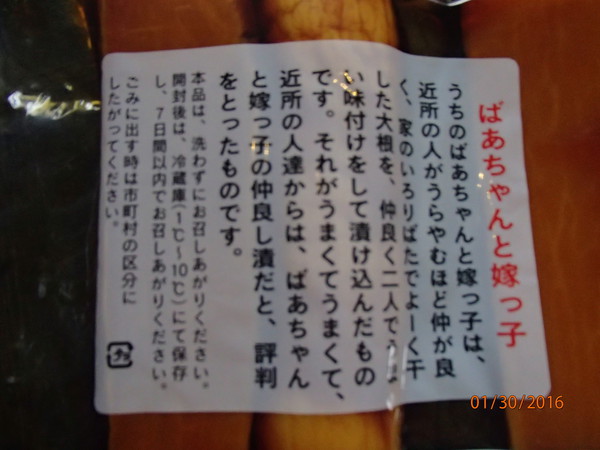 ばあちゃんと嫁っ子
うちのばあちゃんと嫁っ子は、
近所の人がうらやむほど仲が良
く、家のいろりばたでよーく干
した大根を、仲良く二人でうま
い味付けをして漬け込んだもの
です。それがうまくてうまくて、
近所の人達からは、ばあちゃん
と嫁っ子の仲良し漬だと、評判
をとったものです。
本品は、洗わずにお召しあがりください。
開封後は、冷蔵庫(1℃〜10℃)にて保存
し、7日間以内でお召しあがりください。
ごみに出す時は市町村の区分に
したがってください。
プラ
01/30/2016